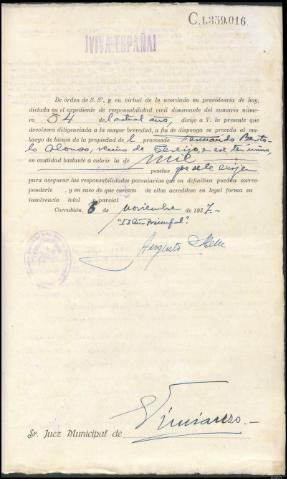 C.1.359.016
¡VIVA ESPAÑA!
De órden de S. Sª, y en virtud de lo acordado en providencia de hoy,
dictada en el expediente de responsabilidad civil dimanante del sumario núme-
ro 54 del actual año, dirijo a V. la presente que
devolverá diligenciada a la mayor brevedad, a fin de disponga se proceda al em-
bargo de bienes de la propiedad del procesado
Alonso, vecino de
en cantidad bastante a cubrir la de mil
pesetas
para asegurar las responsabilidades pecuniarias que en definitiva puedan co-
rresponderle, y en caso de que carezca de ellos acreditará en legal forma su
insolvencia total o parcial
Corcubión, 6 de noviembre de 1937.-
"II Año Triunfal".
Augusto
Sr. Juez Municipal de Vimianzo.-